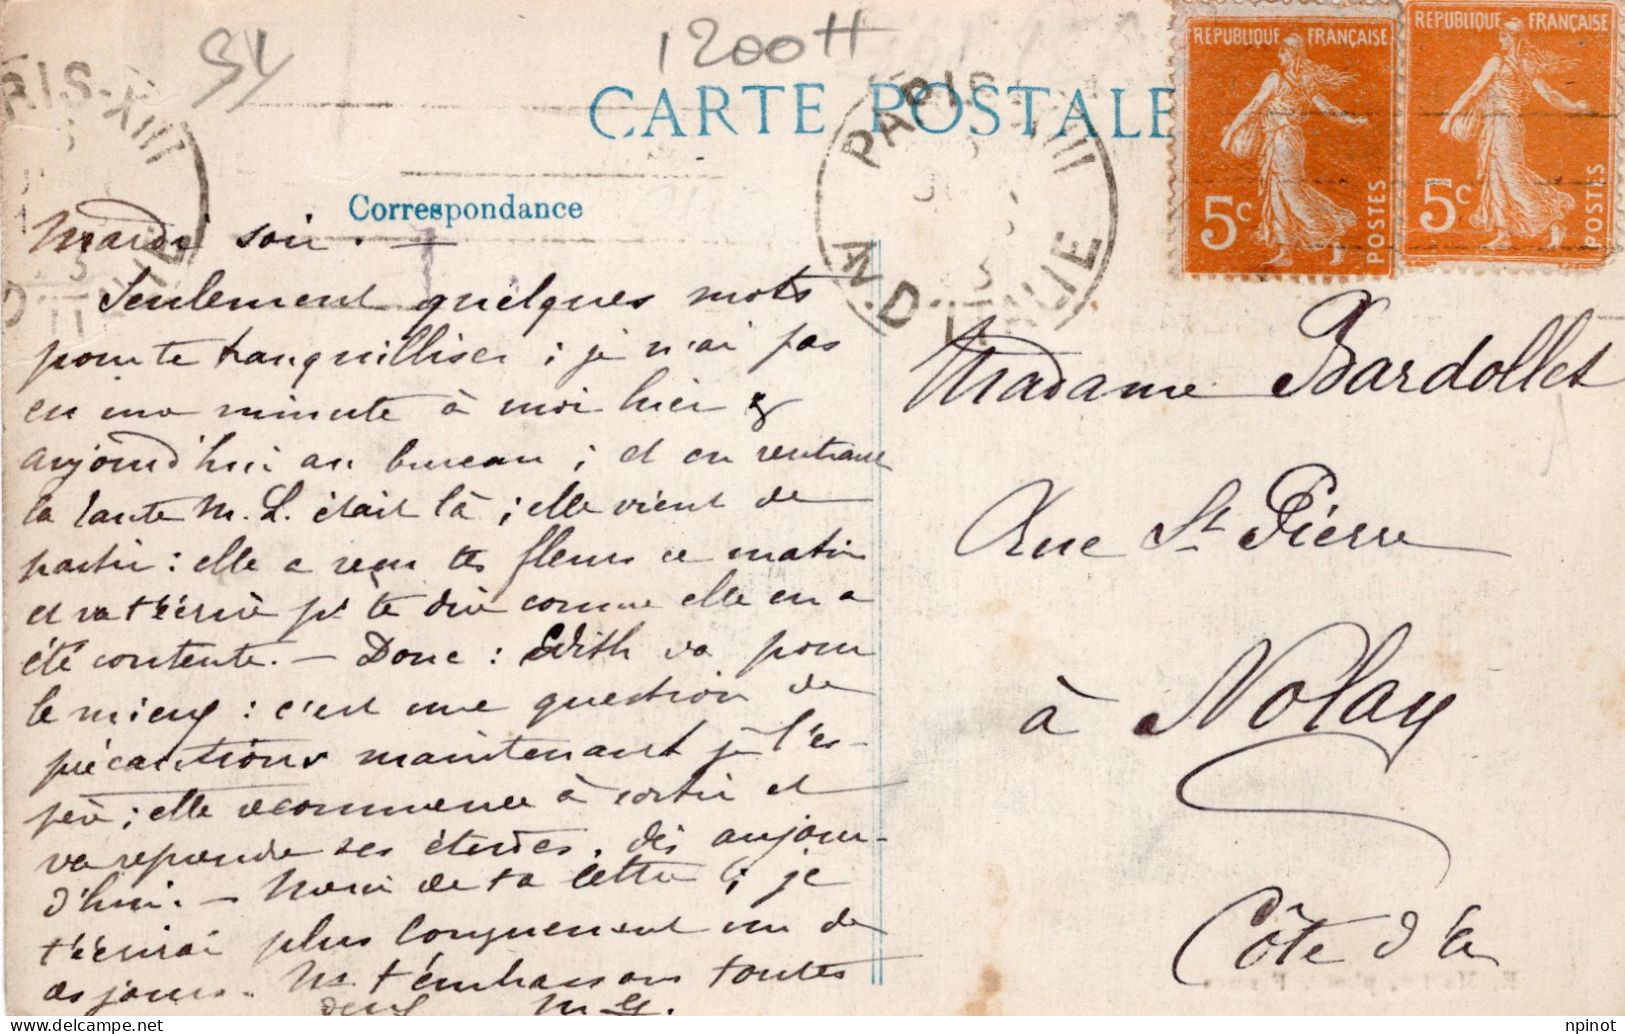 1200 H
CARTE POSTALE
RÉPUBLIQUE FRANÇAISE
5c
POSTES
RÉPUBLIQUE FRANÇAISE
5c
POSTES
PARIS-XIII
PARIS XIII
AV. D'ITALIE
Correspondance
Mardi soir.
Seulement quelques mots
pour te tranquilliser ; je n'ai pas
eu une minute à moi hier &
aujourd'hui au bureau ; et en rentrant
la tante M. L. était là ; elle vient de
partir : elle a reçu tes fleurs ce matin
et va t'écrire pr te dire comme elle en a
été contente. — Donc : Edith va pour
le mieux : c'est une question de
précautions maintenant je l'es-
père ; elle recommence à sortir et
va reprendre ses études, dès aujour-
d'hui. — Merci de ta lettre ; je
t'écrirai plus longuement un de
ces jours. Ns t'embrassons toutes
deux
Madame Bardollet
Rue St Pierre
à Nolay
Côte d'Or
npinot